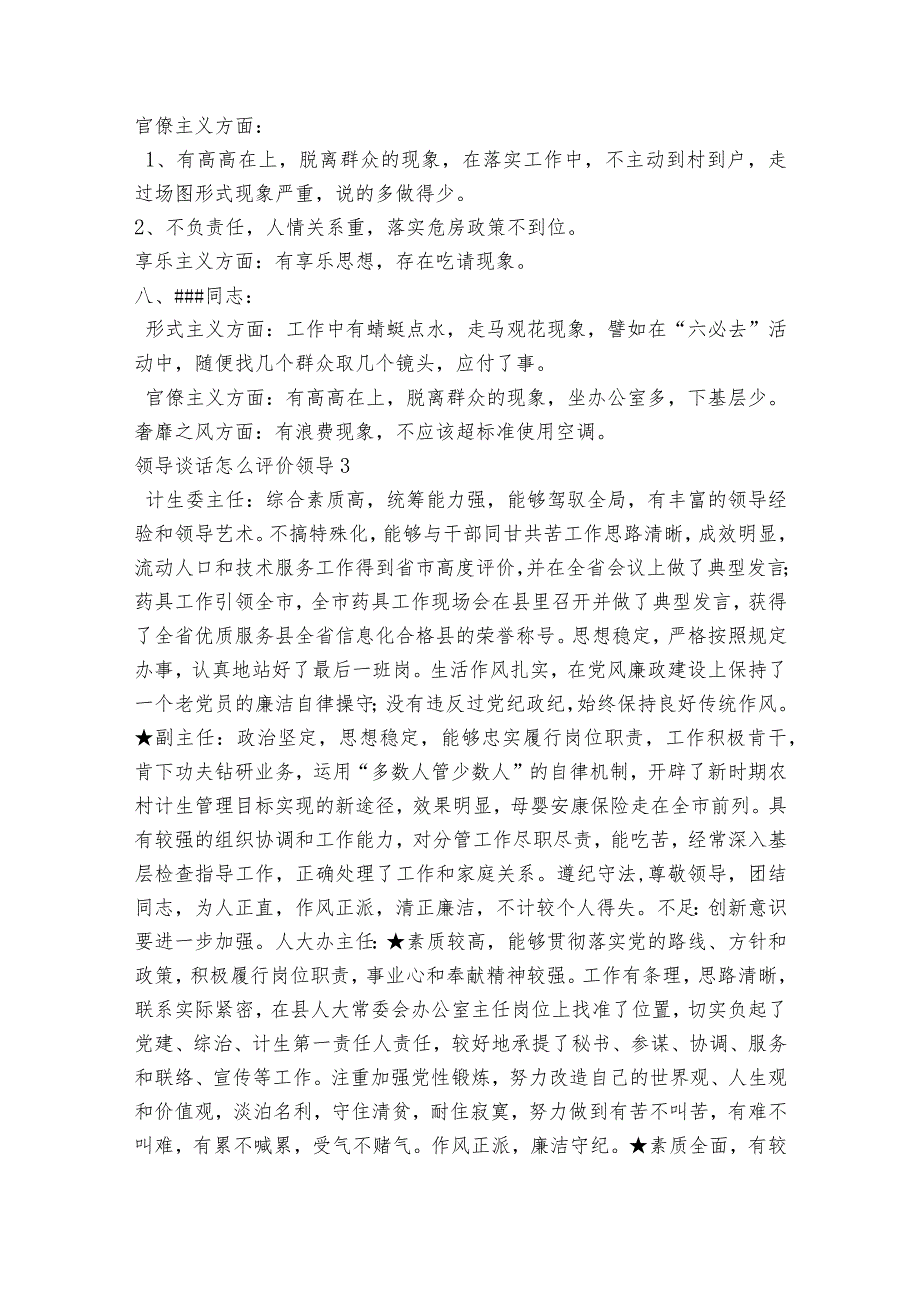 官僚主义方面：
1、有高高在上，脱离群众的现象，在落实工作中，不主动到村到户，走
过场图形式现象严重，说的多做得少。
2、不负责任，人情关系重，落实危房政策不到位。
享乐主义方面：有享乐思想，存在吃请现象。
八、###同志：
形式主义方面：工作中有蜻蜓点水，走马观花现象，譬如在“六必去”活
动中，随便找几个群众取几个镜头，应付了事。
官僚主义方面：有高高在上，脱离群众的现象，坐办公室多，下基层少。
奢靡之风方面：有浪费现象，不应该超标准使用空调。
领导谈话怎么评价领导3
计生委主任：综合素质高，统筹能力强，能够驾驭全局，有丰富的领导经
验和领导艺术。不搞特殊化，能够与干部同甘共苦工作思路清晰，成效明显，
流动人口和技术服务工作得到省市高度评价，并在全省会议上做了典型发言；
药具工作引领全市，全市药具工作现场会在县里召开并做了典型发言，获得
了全省优质服务县全省信息化合格县的荣誉称号。思想稳定，严格按照规定
办事，认真地站好了最后一班岗。生活作风扎实，在党风廉政建设上保持了
一个老党员的廉洁自律操守；没有违反过党纪政纪，始终保持良好传统作风。
★副主任：政治坚定，思想稳定，能够忠实履行岗位职责，工作积极肯干，
肯下功夫钻研业务，运用“多数人管少数人”的自律机制，开辟了新时期农
村计生管理目标实现的新途径，效果明显，母婴安康保险走在全市前列。具
有较强的组织协调和工作能力，对分管工作尽职尽责，能吃苦，经常深入基
层检查指导工作，正确处理了工作和家庭关系。遵纪守法,尊敬领导，团结
同志，为人正直，作风正派，清正廉洁，不计较个人得失。不足：创新意识
要进一步加强。人大办主任：★素质较高，能够贯彻落实党的路线、方针和
政策，积极履行岗位职责，事业心和奉献精神较强。工作有条理，思路清晰，
联系实际紧密，在县人大常委会办公室主任岗位上找准了位置，切实负起了
党建、综治、计生第一责任人责任，较好地承提了秘书、参谋、协调、服务
和联络、宣传等工作。注重加强党性锻炼，努力改造自己的世界观、人生观
和价值观，淡泊名利，守住清贫，耐住寂寞，努力做到有苦不叫苦，有难不
叫难，有累不喊累，受气不赌气。作风正派，廉洁守纪。★素质全面，有较